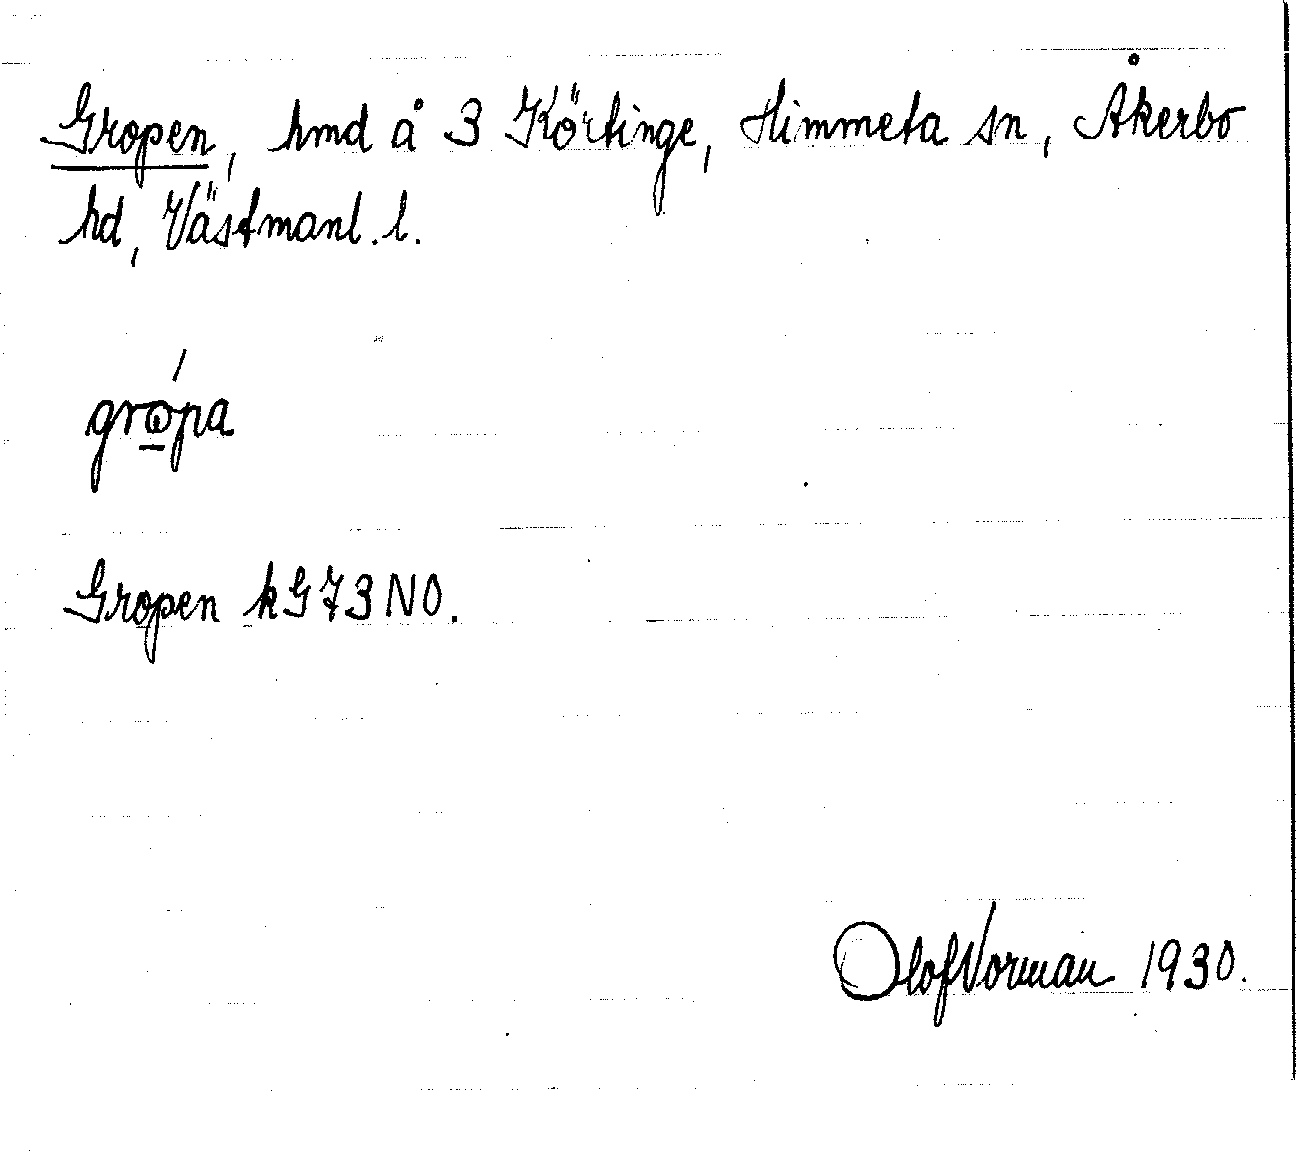 Gropen, hmd å 3 Körtinge, Himmeta sn, Åkerbo
hd, Västmanl. l.
grópa
Gropen kG73NO.
Olof Norman 1930.